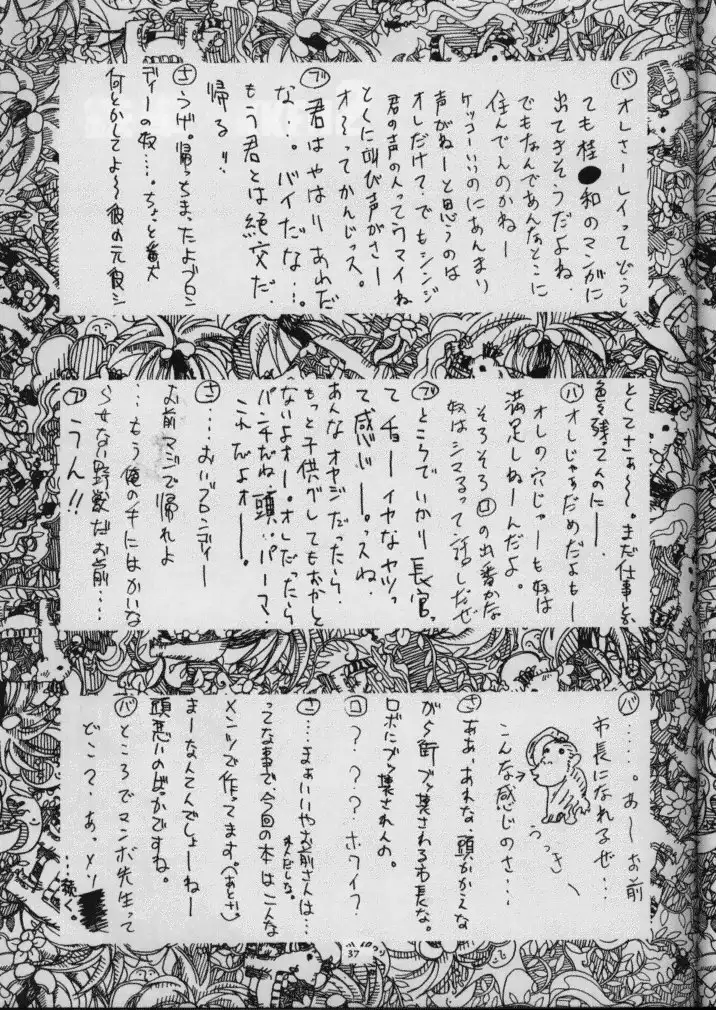 バ オレさーレイってどうし
ても桂●和のマンガに
出てきそうだよね。
でもなんであんなとこに
住んでんのかねー
ケッコーいいのにあんまり
声がねーと思うのは
オレだけ?でもシンジ
君の声の人ってウマイね
とくに叫び声がさー
オ〜ってかんじっス。
ブ 君はやはりあれだ
な…。バイだな…。
もう君とは絶交だ、
帰る!!
さ うげ。帰っちまったよブロン
ディーの奴……。ちょと
何とかしてよ〜彼の元
としてさぁ〜〜。まだ仕事とか
色々残ってんのにー。
バ オレじゃぁだめだよもー
オレの穴じゃーも奴は
満足しねーんだよ。
そろそろロの出番かな
奴はシマるって話しだぜ
ブ ところでいかり長官っ
てチョーイヤなヤツっ
て感じー。っスね、
あんなオヤジだったら、
もっと子供グレてもおかしく
ないよォー。オレだったら
パンチだね、頭、パーマ、
これだよォー。
さ …おいブロンディー
お前マジで帰れよ
…もう俺の手にはおえな
らせない野獣だお前……
ブ うん!!
バ ……。あーお前
市長になれるぜ…
こんな感じのさ…
うっきー
さ ああ、あれな、頭かかえな
がら街ブッ壊される市長な。
ロボにブッ壊されんの。
ロ ???ホワイ?
さ …まぁいいやお前さんは…
休んどしな。
ってな事で、今回の本はこんな
メンツで作ってます。(あとさ)
まーなんてんでしょーねー
頭悪いのばっかですね。
バ ところでマンボ先生って
どこ?、あっメソ
…続く。
37